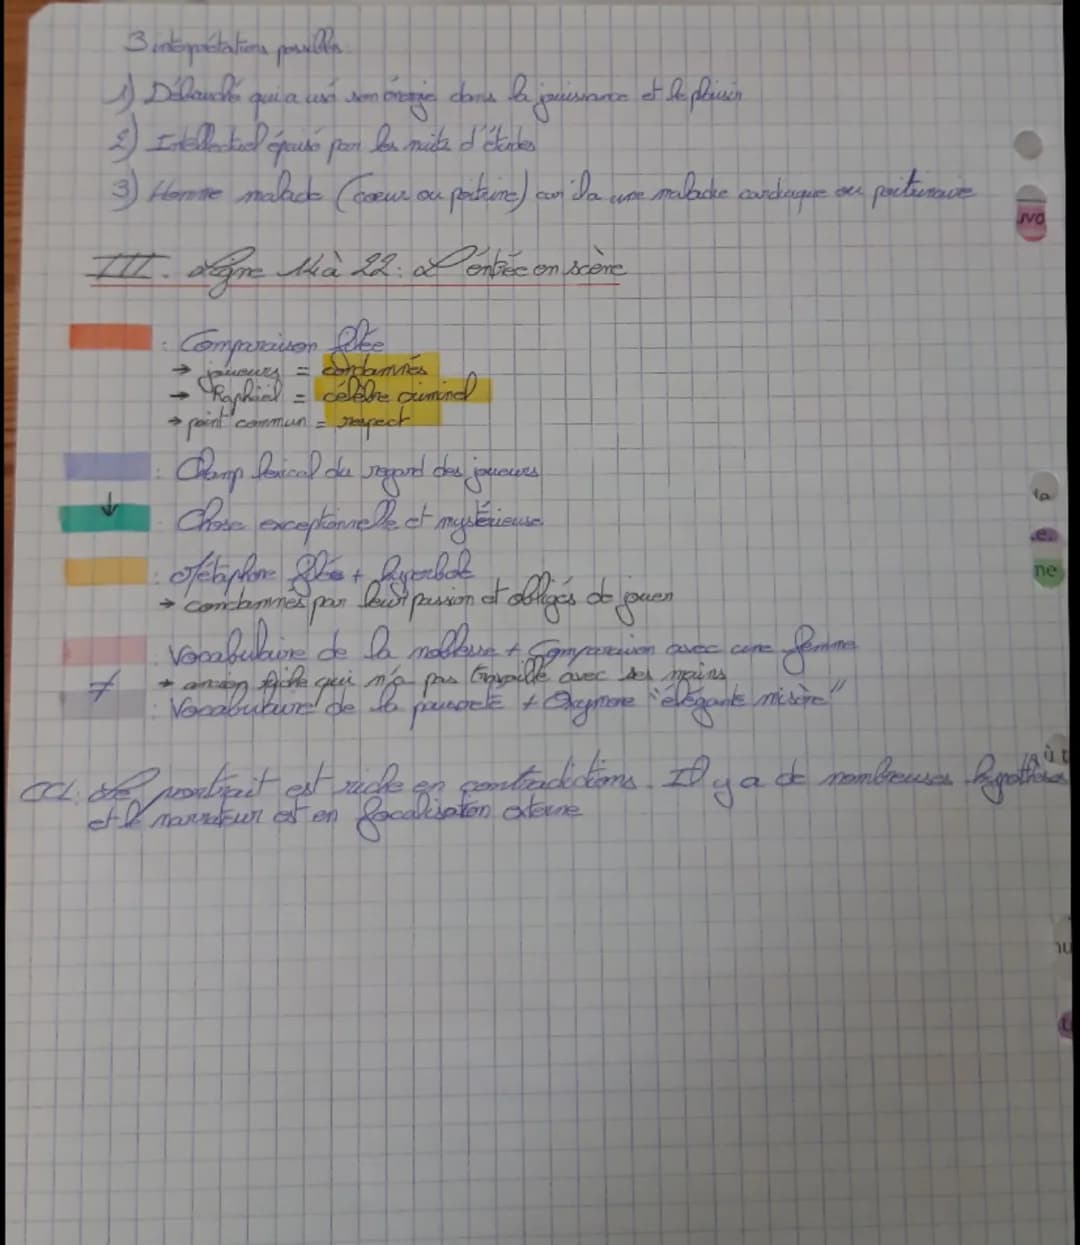 3 interprétations possibles
1) Débauché qui a usé son énergie dans la jouissance et le plaisir
2) Intellectuel épuisé par les nuits d'études
3) Homme malade (coeur ou poitrine) car il a une maladie cardiaque ou poitrinaire
III. Ligne 14 à 22 : L'entrée en scène
: Comparaison filée
→ joueurs = condamnés
→ Raphaël = célèbre criminel
→ point commun = respect
: Champ lexical du regard des joueurs
↓ : Chose exceptionnelle et mystérieuse
: Métaphore filée + hyperbole
→ condamnés par leur passion et obligés de jouer
: Vocabulaire de la noblesse + Comparaison avec une femme
≠ → ancien riche qui n'a pas travaillé avec ses mains
: Vocabulaire de la pauvreté + Oxymore "élégante misère"
CCL: Le portrait est riche en contradictions. Il y a de nombreuses hypothèses
et le narrateur est en focalisation externe